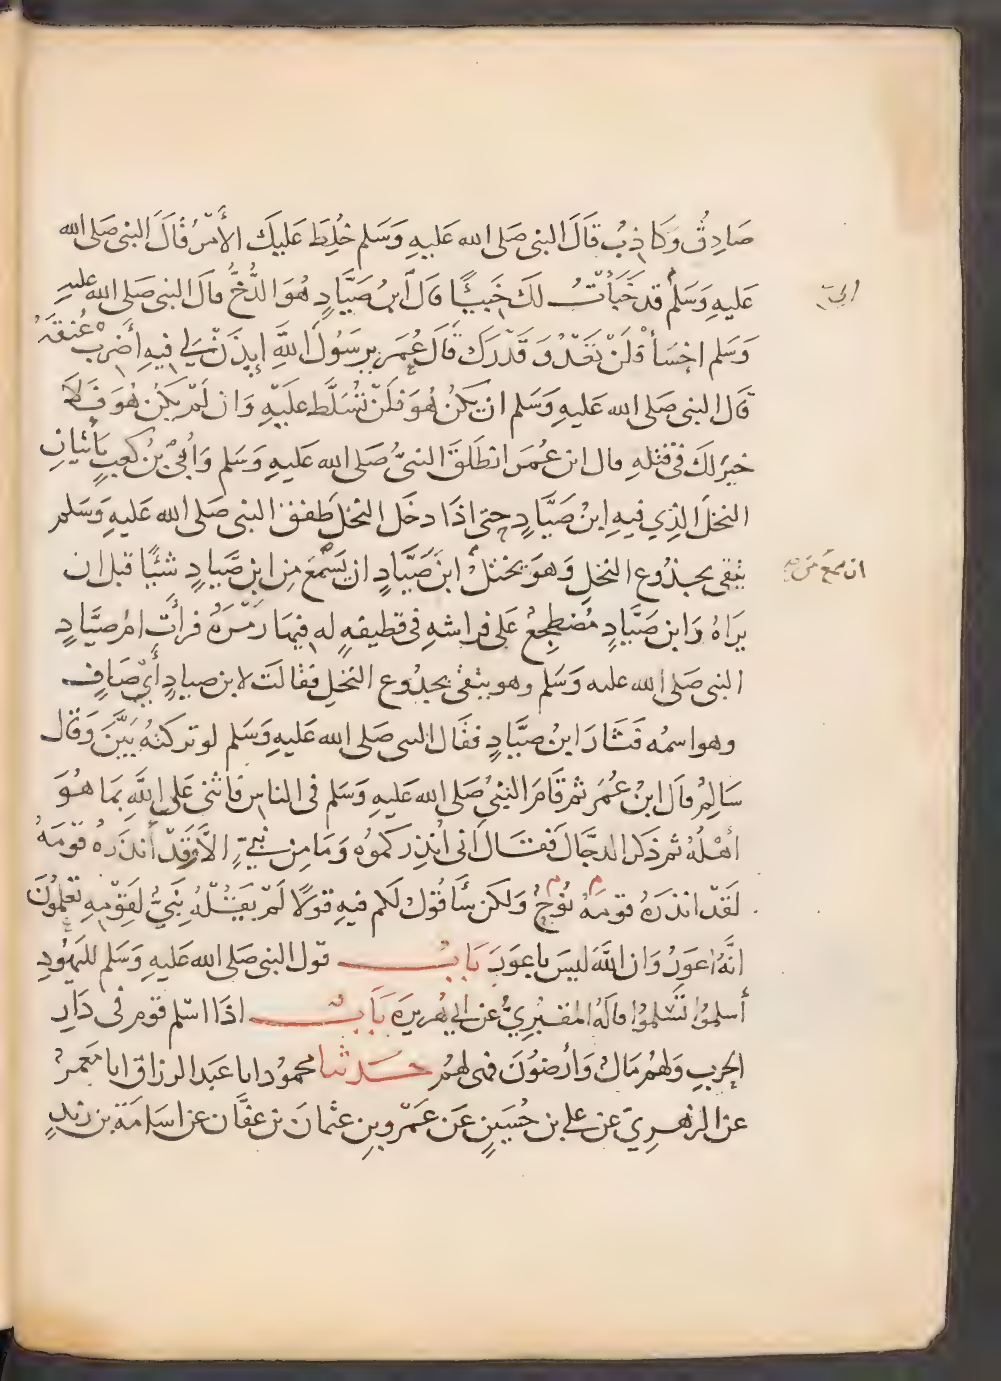 صَادِقٌ وَكَاذِبٌ قَالَ النبي صَلى الله عَليهِ وَسَلم خُلِطَ عَليكَ الأَمْرُ قَالَ النبي صَلى الله
عَليهِ وَسَلم قد خَبَأْتُ لكَ خَبِيئًا قال ابنُ صَيَّادٍ هُوَ الدُّخُّ قال النبي صَلى الله عليهِ
وَسَلم اخْسَأْ فَلَنْ تَعْدُوَ قَدْرَكَ قَالَ عُمَر يرَسُولَ اللَّهِ إيذَنْ لي فيهِ أَضْرِبْ عُنقَهُ
قَال النبي صَلى الله عَليهِ وَسَلم ان يكنْ هُوَ فلَنْ تُسَلَّط عَليْهِ وَان لَمْ يَكنْ هُوَ فَلا
خيرَ لكَ في قتلهِ قال ابن عُمَر انطَلَقَ النبيُّ صَلى الله عَليهِ وَسَلم وَأُبَيُّ بنُ كعبٍ يَأتيَانِ
النخلَ الذِي فيهِ ابنُ صَيَّادٍ حتى اذَا دخَل النخل طَفِقَ النبي صَلى الله عَليهِ وَسَلم
يتقي بجذُوع النخلِ وَهوَ يختلُ ابنَ صَيَّادٍ ان يَسْمَعَ مِن ابن صَيادٍ شيًا قبل ان
يرَاهُ وَابن صَيَّادٍ مُضطجعٌ عَلى فراشهِ في قطيفةٍ له فيهَا رَمْزَةٌ فرأَت امُ صيَّادٍ
النبي صَلى الله عليه وَسَلم وهو يتقي بجذُوع النخلِ فقالَت لابن صيادٍ أيْ صَافِ
وهو اسمُه فَثَارَ ابنُ صيَّادٍ فقَال النبي صَلى الله عَليهِ وَسَلم لو تركتْهُ بَيَّنَ وَقال
سَالِمٌ قال ابنُ عُمَر ثم قَامَ النبيُّ صَلى الله عَليهِ وَسَلم في الناس فاثنى عَلى اللَّهِ بمَا هُوَ
أَهْلُهُ ثم ذكر الدجَّالَ فقَالَ اني أُنذِركموُه وَمَا مِن نَبِيٍّ الاَّ وَقَدْ أَنذَرهُ قَوْمَهُ
لَقَدْ انذرَهُ نوُحٌ قومَهُ وَلكن سَأقُول لَكم فيهِ قولًا لَمْ يَقُلْهُ نَبِيٌّ لِقَوْمِهِ تعْلَمُونَ
انَّهُ اعوَرُ وَان اللَّهَ ليسَ باعوَرَ بَابُ قول النبي صَلى الله عَليهِ وَسَلم لليَهُودِ
أسلِمُوا تَسْلموُا قالَهُ المقبُرِيُّ عن ابي هُريرَة بَابُ اذَا اسْلم قوم في دَارِ
الحَربِ وَلهُم مَالٌ وَأَرضُونَ فهي لهُم حَدثنا محموُد انا عَبد الرزاق انا مَعمرٌ
عن الزهرِيّ عَن علي بن حُسَينٍ عَن عَمْرو بن عثمانَ بن عفَّان عن اسَامَة بن زيدٍ
ان سمعَ مَن